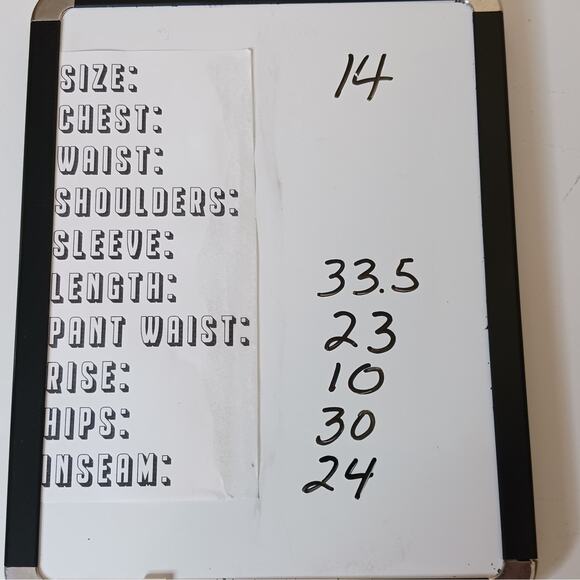 SIZE: 14
CHEST:
WAIST:
SHOULDERS:
SLEEVE:
LENGTH: 33.5
PANT WAIST: 23
RISE: 10
HIPS: 30
INSEAM: 24